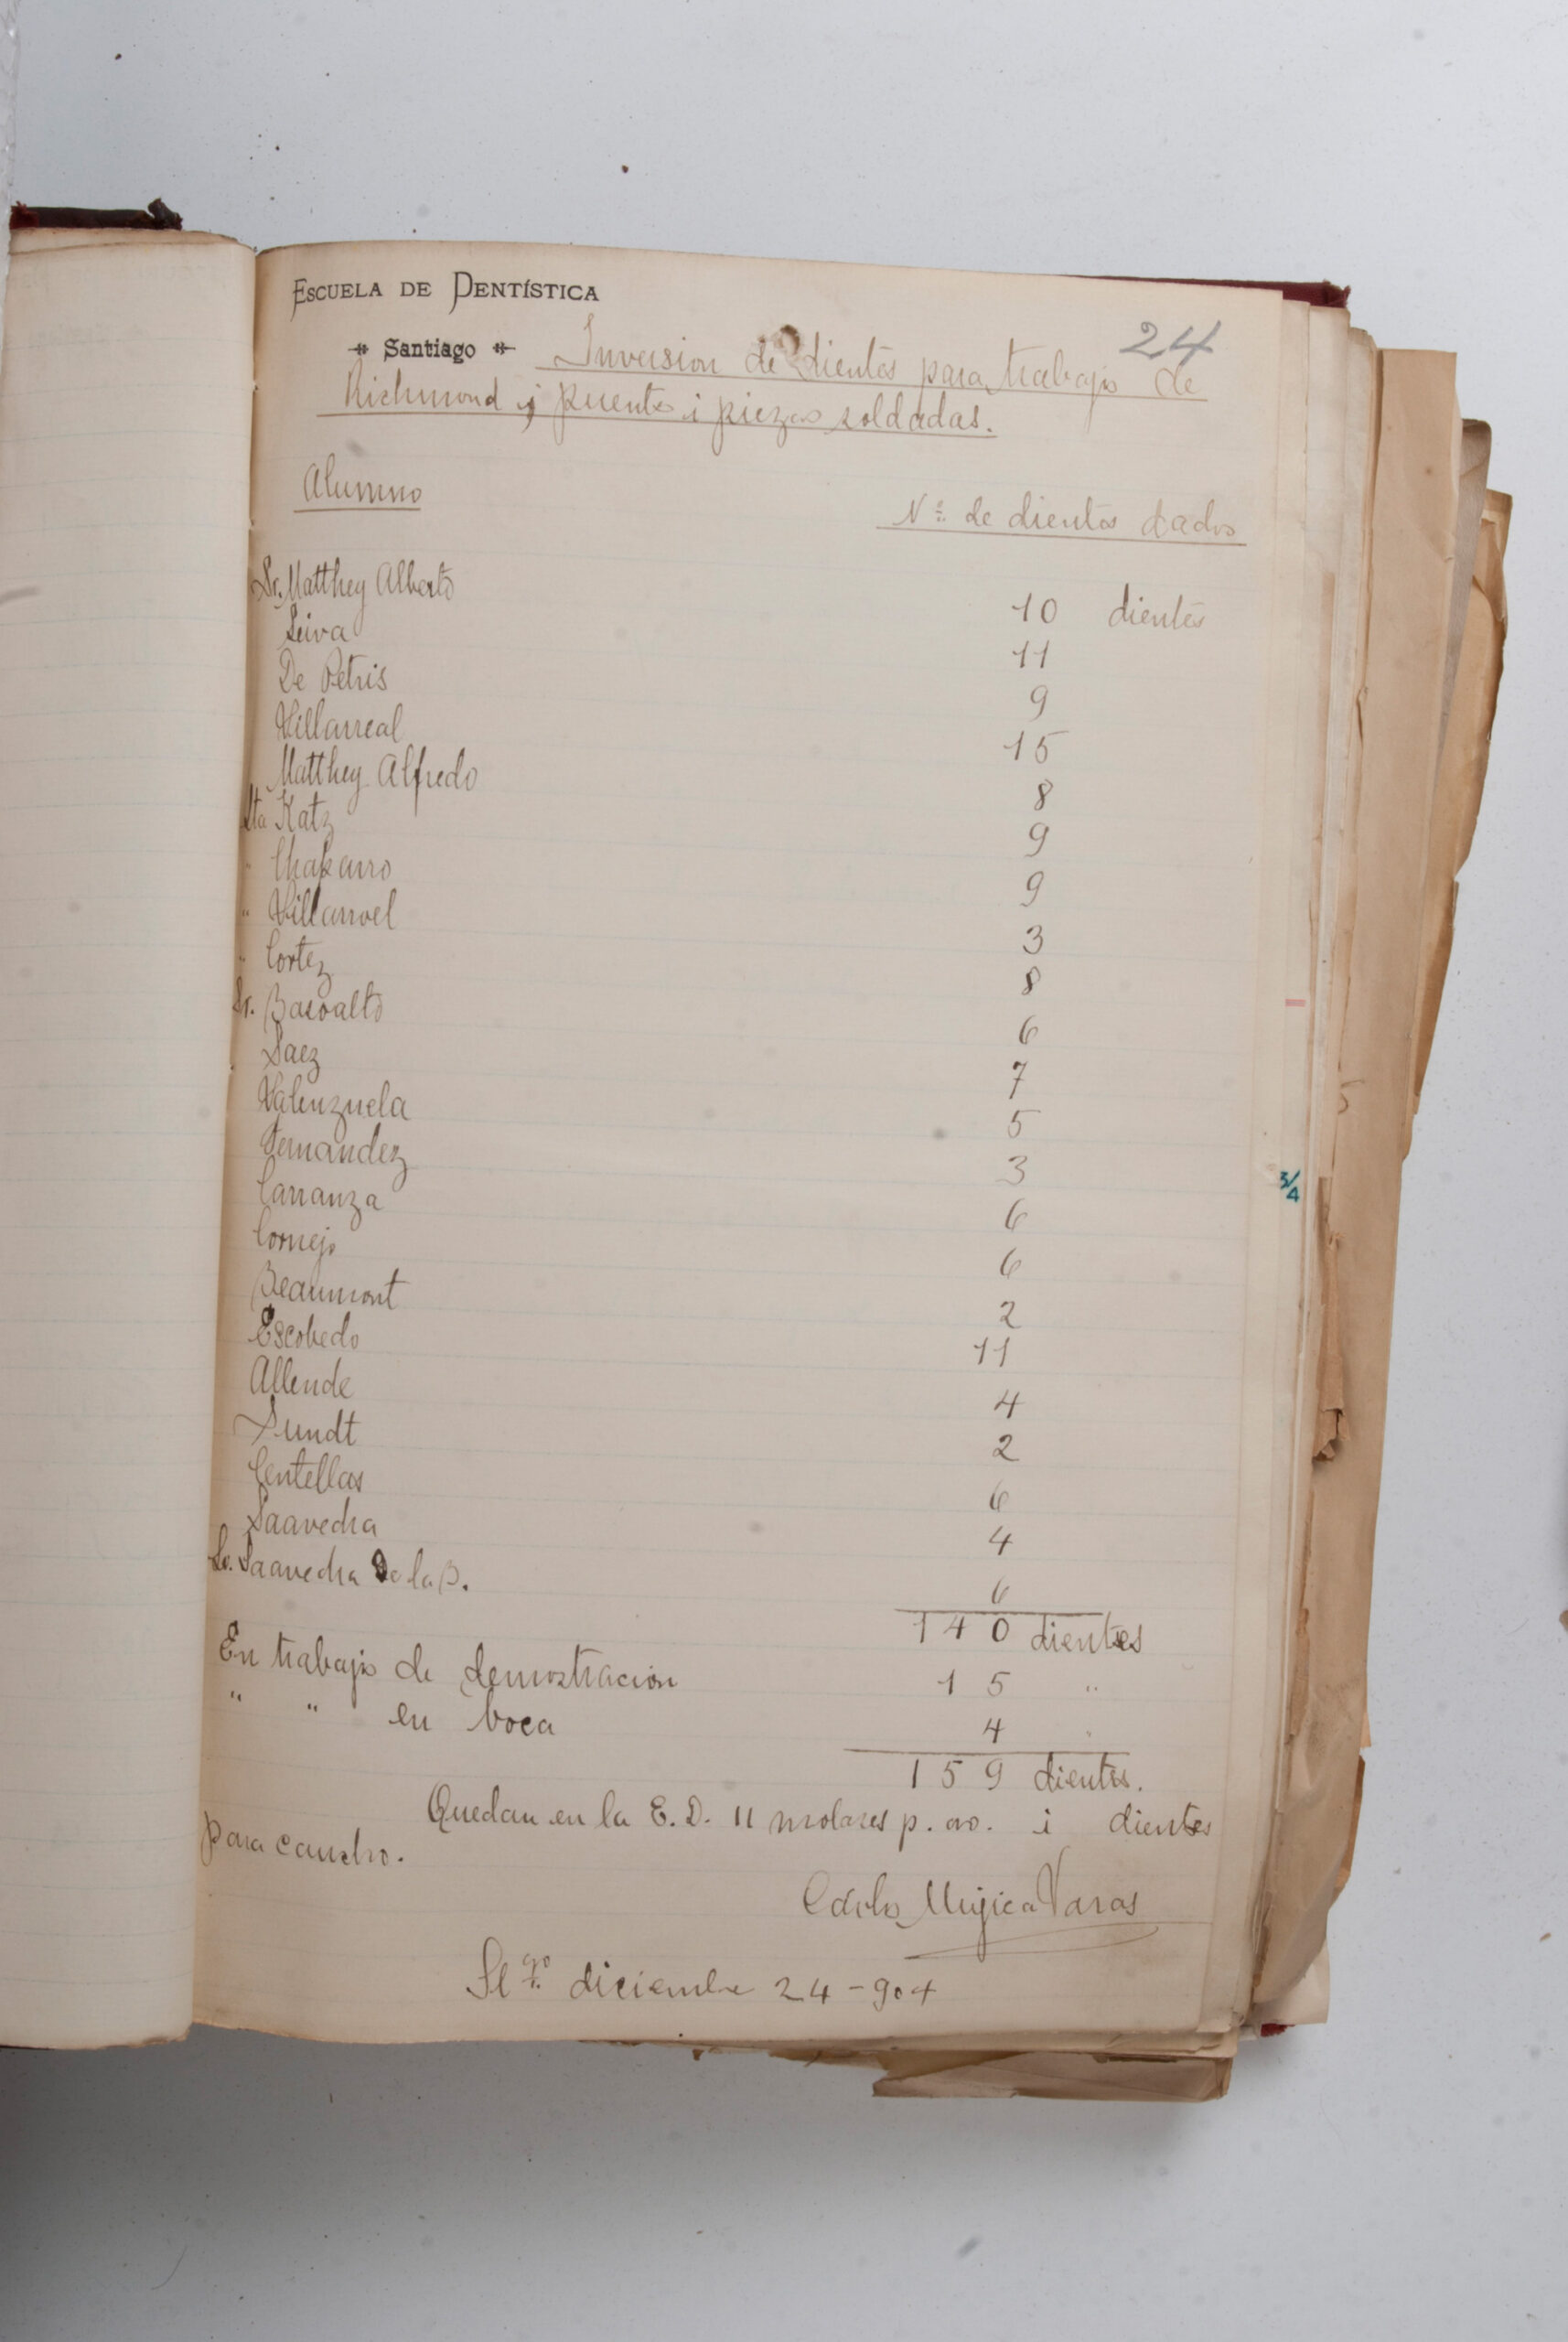 ESCUELA DE DENTÍSTICA
24
Santiago Inversion de dientes para trabajos de
Richmond, puentes i piezas soldadas.
Alumno
Nº de dientes dados
Sr. Matthey Alberto 10 dientes
Leiva 11
De Petris 9
Villarreal 15
Matthey Alfredo 8
Sta Katz 9
" Chaparro 9
" Villarroel 3
" Cortez 8
Sr. Basoalto 6
Saez 7
Valenzuela 5
Fernandez 3
Carranza 6
Cornejo 6
Beaumont 2
Escobedo 11
Allende 4
Sundt 2
Centellas 6
Saavedra 4
Saavedra De la B. 6
140 dientes
En trabajos de demostracion 15 "
" " en boca 4 "
159 dientes.
Quedan en la E. D. 11 molares p. i dientes
para caucho.
Mujica Varas
diciembre 24-904
3/4